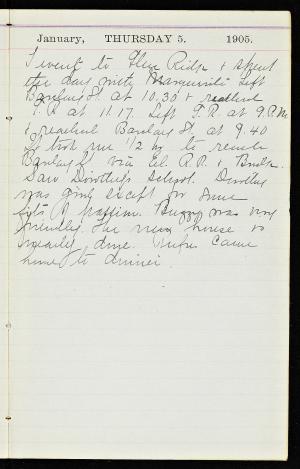 January, THURSDAY 5. 1905.
I went to Glen Ridge & spent
the day with Marguerite Left
Barclay St. at 10.30 & reached
G.R. at 11.17. Left G.R. at 9 P.M.
& reached Barclay St. at 9.40
It took me 1/2 hr to reach
Barclay St via El. R.R. &
Saw Dorothy's School. Dorothy
was good except for some
fits of passion. was very
friendly. The new house is
nearly done. Rufus came
home to dinner.